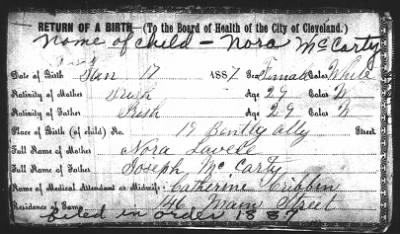 RETURN OF A BIRTH—(To the Board of Health of the City of Cleveland.)
Name of child - Nora McCarty
Date of Birth Jan 17 1887 Sex Female Color White
Nativity of Mother Irish Age 29 Color W
Nativity of Father Irish Age 29 Color W
Place of Birth (of child) No. 19 Bently ally Street
Full Name of Mother Nora Lavelle
Full Name of Father Joseph McCarty
Name of Medical Attendant or Midwife, Catherine Cribbin
Residence of Same 146 Main Street
filed in order 1887